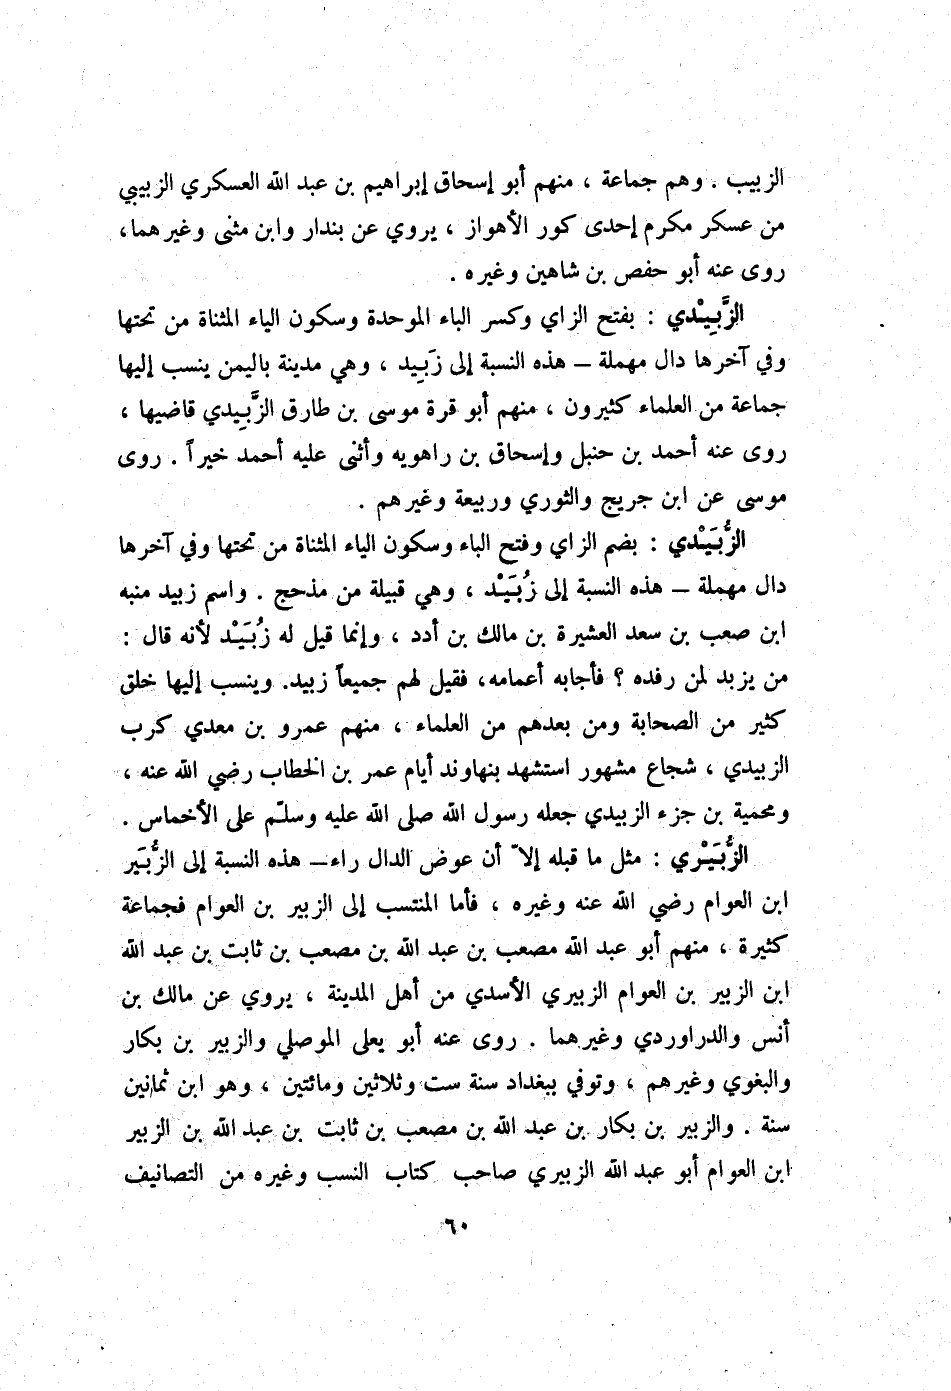 الزبيب . وهم جماعة ، منهم أبو إسحاق إبراهيم بن عبد الله العسكري الزبيبي
من عسكر مكرم إحدى كور الأهواز ، يروي عن بندار وابن مثنى وغيرهما،
روى عنه أبو حفص بن شاهين وغيره .
الزَّبِيْدي : بفتح الزاي وكسر الباء الموحدة وسكون الياء المثناة من تحتها
وفي آخرها دال مهملة – هذه النسبة إلى زَبِيد ، وهي مدينة باليمن ينسب إليها
جماعة من العلماء كثيرون ، منهم أبو قرة موسى بن طارق الزَّبِيدي قاضيها ،
روى عنه أحمد بن حنبل وإسحاق بن راهويه وأثنى عليه أحمد خيراً . روى
موسى عن ابن جريج والثوري وربيعة وغيرهم .
الزُّبَيْدي : بضم الزاي وفتح الباء وسكون الياء المثناة من تحتها وفي آخرها
دال مهملة – هذه النسبة إلى زُبَيْد ، وهي قبيلة من مذحج . واسم زبيد منبه
ابن صعب بن سعد العشيرة بن مالك بن أدد ، وإنما قيل له زُبَيْد لأنه قال :
من يزبد لمن رفده ؟ فأجابه أعمامه، فقيل لهم جميعاً زبيد. وينسب إليها خلق
كثير من الصحابة ومن بعدهم من العلماء ، منهم عمرو بن معدي كرب
الزبيدي ، شجاع مشهور استشهد بنهاوند أيام عمر بن الخطاب رضي الله عنه ،
ومحمية بن جزء الزبيدي جعله رسول الله صلى الله عليه وسلّم على الأخماس .
الزُّبَيْري : مثل ما قبله إلاّ أن عوض الدال راء– هذه النسبة إلى الزُّبَير
ابن العوام رضي الله عنه وغيره ، فأما المنتسب إلى الزبير بن العوام فجماعة
كثيرة ، منهم أبو عبد الله مصعب بن عبد الله بن مصعب بن ثابت بن عبد الله
ابن الزبير بن العوام الزبيري الأسدي من أهل المدينة ، يروي عن مالك بن
أنس والدراوردي وغيرهما . روى عنه أبو يعلى الموصلي والزبير بن بكار
والبغوي وغيرهم ، وتوفي ببغداد سنة ست وثلاثين ومائتين ، وهو ابن ثمانين
سنة . والزبير بن بكار بن عبد الله بن مصعب بن ثابت بن عبد الله بن الزبير
ابن العوام أبو عبد الله الزبيري صاحب كتاب النسب وغيره من التصانيف
٦٠